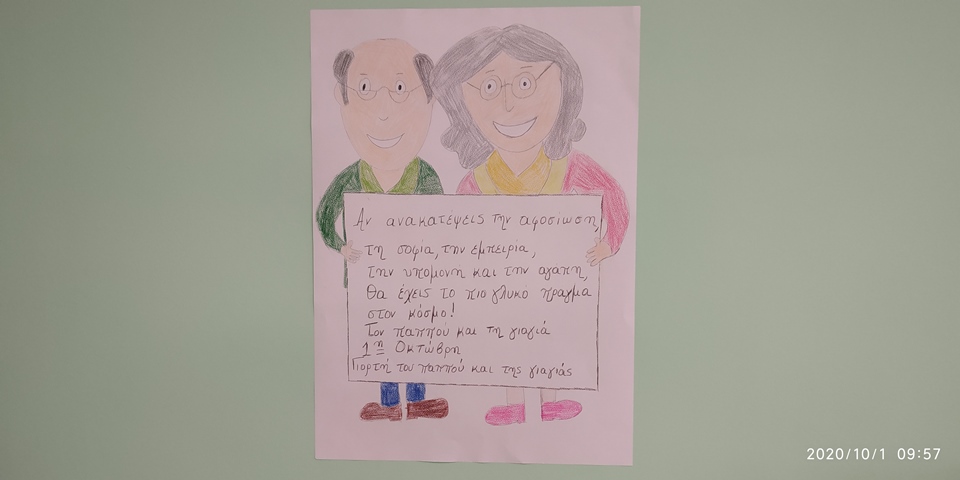 Αν ανακατέψεις την αφοσίωση,
τη σοφία, την εμπειρία,
την υπομονη και την αγαπη,
θα έχεις το πιο γλυκό πραγμα
στον κόσμο!
Τον παππού και τη γιαγιά
1η Οκτώβρη
Γιορτή του παππού και της γιαγιάς
2020/10/1 09:57